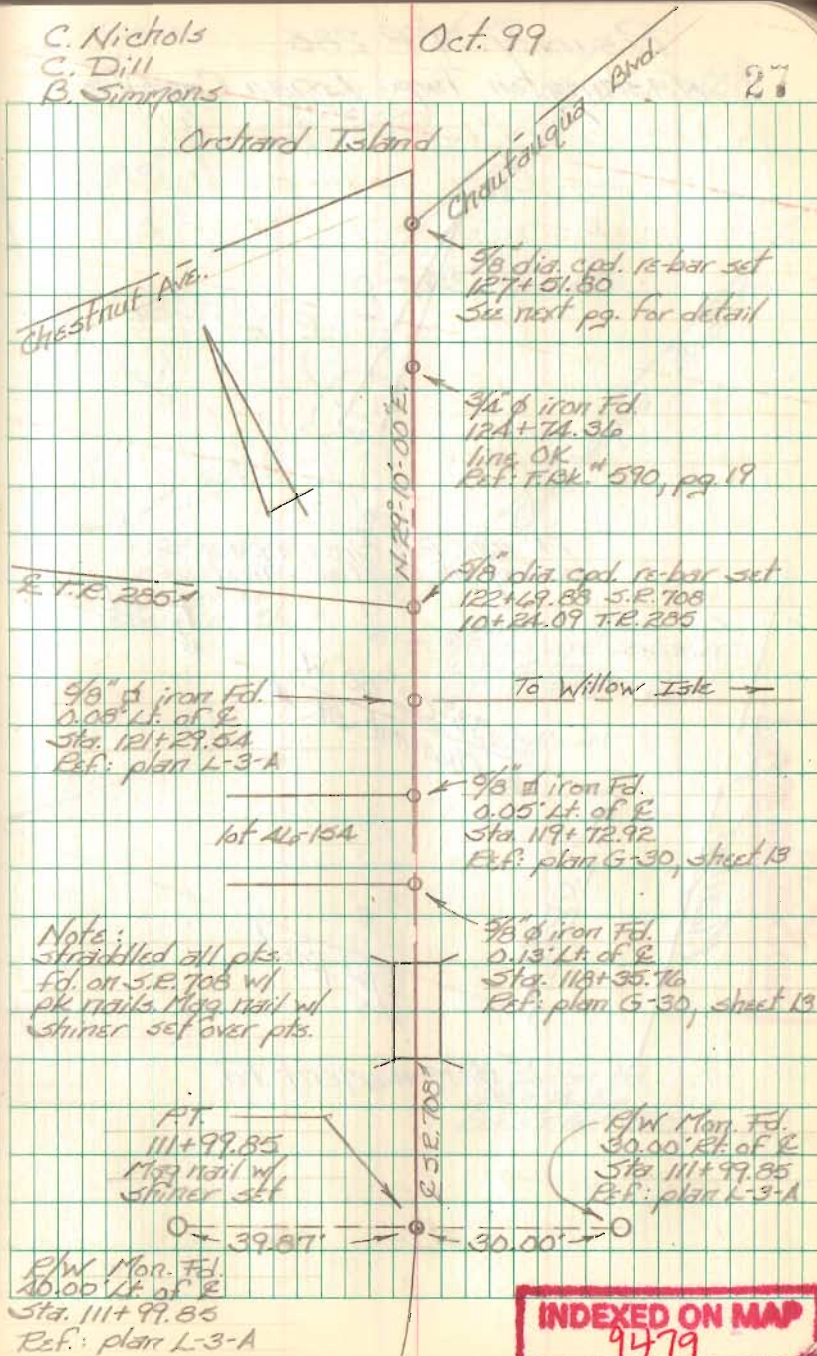 C. Nichols
C. Dill
B. Simmons
Oct. 99
27
Orchard Island
Chautauqua Blvd.
Chestnut Ave.
5/8" dia. cpd. re-bar set
127+51.80
See next pg. for detail
3/4" ϕ iron Fd.
124+74.36
line OK
Ref: F.Bk.# 590, pg. 19
N.29°-10'-00"E.
℄ T.R. 285
5/8" dia. cpd. re-bar set
122+69.88 S.R. 708
10+24.09 T.R. 285
5/8" ϕ iron Fd.
0.08' Lt. of ℄
Sta. 121+29.54
Ref: plan L-3-A
To Willow Isle
5/8" ϕ iron Fd.
0.05' Lt. of ℄
Sta. 119+72.92
Ref: plan G-30, sheet 13
lot 46-154
5/8" ϕ iron Fd.
0.13' Lt. of ℄
Sta. 118+35.76
Ref: plan G-30, sheet 13
Note:
straddled all pts.
fd. on S.R. 708 w/
pk nails. Mag nail w/
shiner set over pts.
℄ S.R. 708
P.T.
111+99.85
Mag nail w/
shiner set
R/W Mon. Fd.
30.00' Rt. of ℄
Sta. 111+99.85
Ref: plan L-3-A
39.87'
30.00'
R/W Mon. Fd.
40.00' Lt. of ℄
Sta. 111+99.85
Ref: plan L-3-A
INDEXED ON MAP
9479